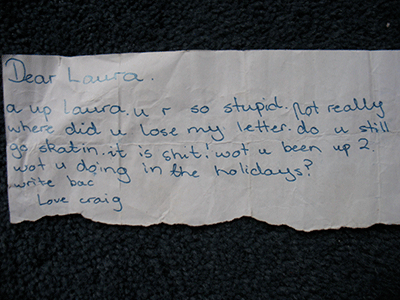 Dear Laura.
a up laura. u r so stupid. Not really
where did u lose my letter. do u still
go skatin. it is shit! wot u been up 2.
wot u doing in the holidays?
write bac
Love craig